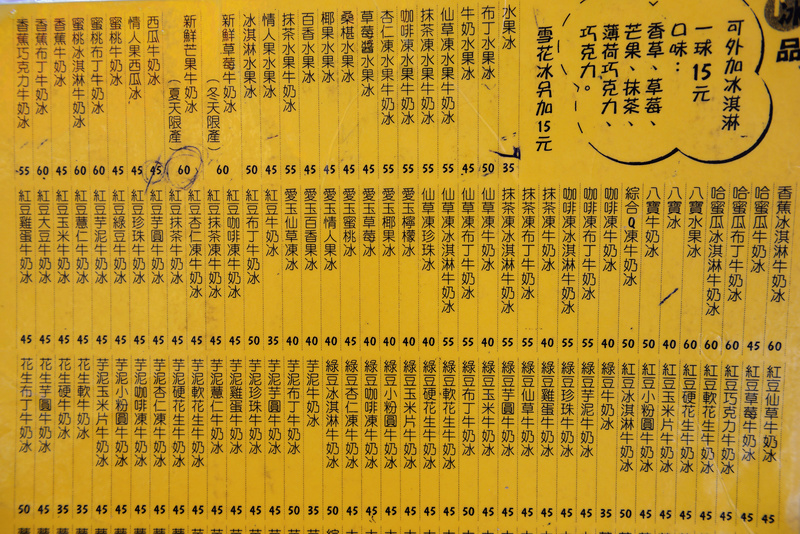 冰品
可外加冰淇淋
一球15元
口味：
香草、草莓、
芒果、抹茶、
薄荷巧克力、
巧克力。
雪花冰另加15元
水果冰 35
布丁水果冰 50
牛奶水果冰 45
仙草凍水果牛奶冰 55
抹茶凍水果牛奶冰 55
咖啡凍水果牛奶冰 55
杏仁凍水果牛奶冰 55
草莓醬水果冰 45
桑椹水果冰 45
椰果水果冰 45
百香水果冰 45
抹茶水果冰 55
情人果水果冰 45
冰淇淋水果冰 50
新鮮草莓牛奶冰（冬天限產） 60
新鮮芒果牛奶冰（夏天限產） 60
西瓜牛奶冰 45
情人果西瓜冰 45
蜜桃牛奶冰 45
蜜桃布丁牛奶冰 60
蜜桃冰淇淋牛奶冰 60
香蕉牛奶冰 45
香蕉布丁牛奶冰 60
香蕉巧克力牛奶冰 55
香蕉冰淇淋牛奶冰 60
哈蜜瓜牛奶冰 45
哈蜜瓜布丁牛奶冰 60
哈蜜瓜冰淇淋牛奶冰 60
八寶水果冰 60
八寶冰 40
八寶牛奶冰 50
綜合Q凍牛奶冰 50
咖啡凍牛奶冰 40
咖啡凍布丁牛奶冰 55
咖啡凍冰淇淋牛奶冰 55
抹茶凍牛奶冰 40
抹茶凍布丁牛奶冰 55
抹茶凍冰淇淋牛奶冰 55
仙草凍牛奶冰 40
仙草凍布丁牛奶冰 55
仙草凍冰淇淋牛奶冰 55
仙草凍珍珠冰 40
愛玉檸檬冰 40
愛玉椰果冰 40
愛玉草莓冰 40
愛玉蜜桃冰 40
愛玉情人果冰 40
愛玉百香果冰 40
愛玉仙草凍冰 40
紅豆牛奶冰 35
紅豆布丁牛奶冰 50
紅豆咖啡凍牛奶冰 45
紅豆抹茶凍牛奶冰 45
紅豆杏仁凍牛奶冰 45
紅豆抹茶牛奶冰 45
紅豆芋圓牛奶冰 45
紅豆珍珠牛奶冰 45
紅豆綠豆牛奶冰 45
紅豆芋泥牛奶冰 45
紅豆薏仁牛奶冰 45
紅豆玉米牛奶冰 45
紅豆大豆牛奶冰 45
紅豆雞蛋牛奶冰 45
紅豆仙草牛奶冰 45
紅豆草莓牛奶冰 45
紅豆巧克力牛奶冰 45
紅豆軟花生牛奶冰 45
紅豆硬花生牛奶冰 45
紅豆玉米片牛奶冰 45
紅豆小粉圓牛奶冰 45
紅豆冰淇淋牛奶冰 50
綠豆牛奶冰 35
綠豆芋泥牛奶冰 45
綠豆珍珠牛奶冰 45
綠豆雞蛋牛奶冰 45
綠豆仙草牛奶冰 45
綠豆芋圓牛奶冰 45
綠豆玉米牛奶冰 45
綠豆布丁牛奶冰 50
綠豆軟花生牛奶冰 45
綠豆硬花生牛奶冰 45
綠豆玉米片牛奶冰 45
綠豆小粉圓牛奶冰 45
綠豆咖啡凍牛奶冰 45
綠豆杏仁凍牛奶冰 45
綠豆冰淇淋牛奶冰 50
芋泥牛奶冰 35
芋泥布丁牛奶冰 50
芋泥芋圓牛奶冰 45
芋泥珍珠牛奶冰 45
芋泥雞蛋牛奶冰 45
芋泥薏仁牛奶冰 45
芋泥軟花生牛奶冰 45
芋泥硬花生牛奶冰 45
芋泥杏仁凍牛奶冰 45
芋泥咖啡凍牛奶冰 45
芋泥小粉圓牛奶冰 45
芋泥玉米片牛奶冰 45
花生軟牛奶冰 35
花生硬牛奶冰 35
花生芋圓牛奶冰 45
花生布丁牛奶冰 50